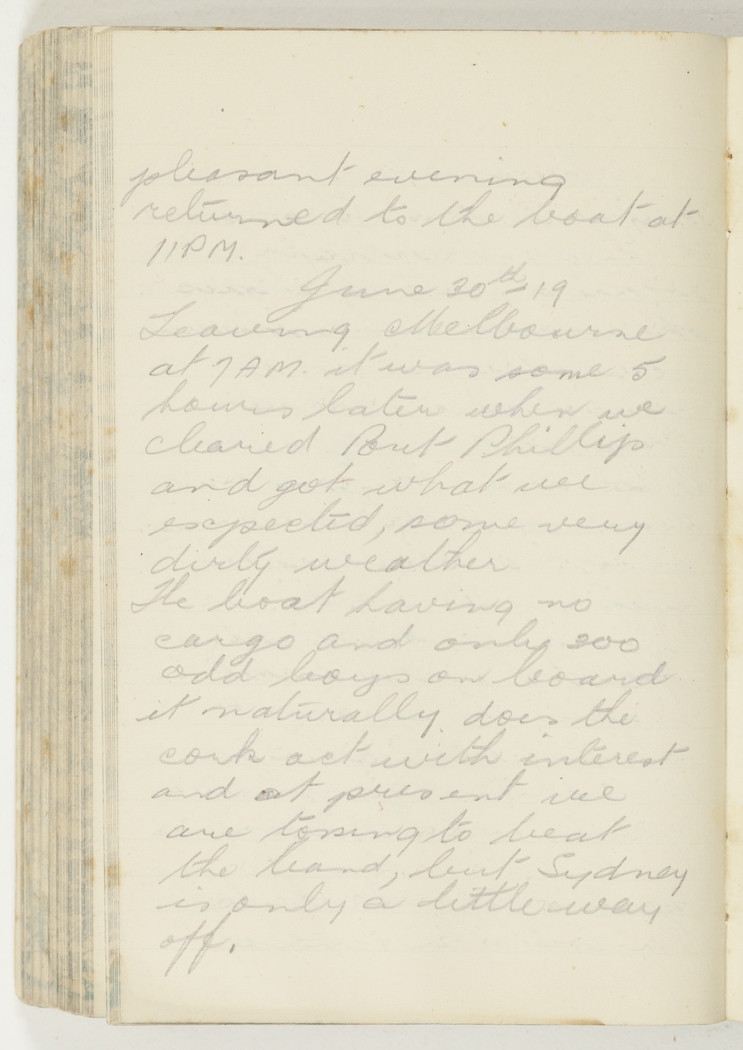 pleasant evening
returned to the boat at
11 P.M.
June 30th-19
Leaving Melbourne
at 7 AM. it was some 5
hours later when we
cleared Port Phillip
and got what we
expected, some very
dirty weather
The boat having no
cargo and only 300
odd boys on board
it naturally does the
cork act with interest
and at present we
are tossing to beat
the band, but Sydney
is only a little way
off.